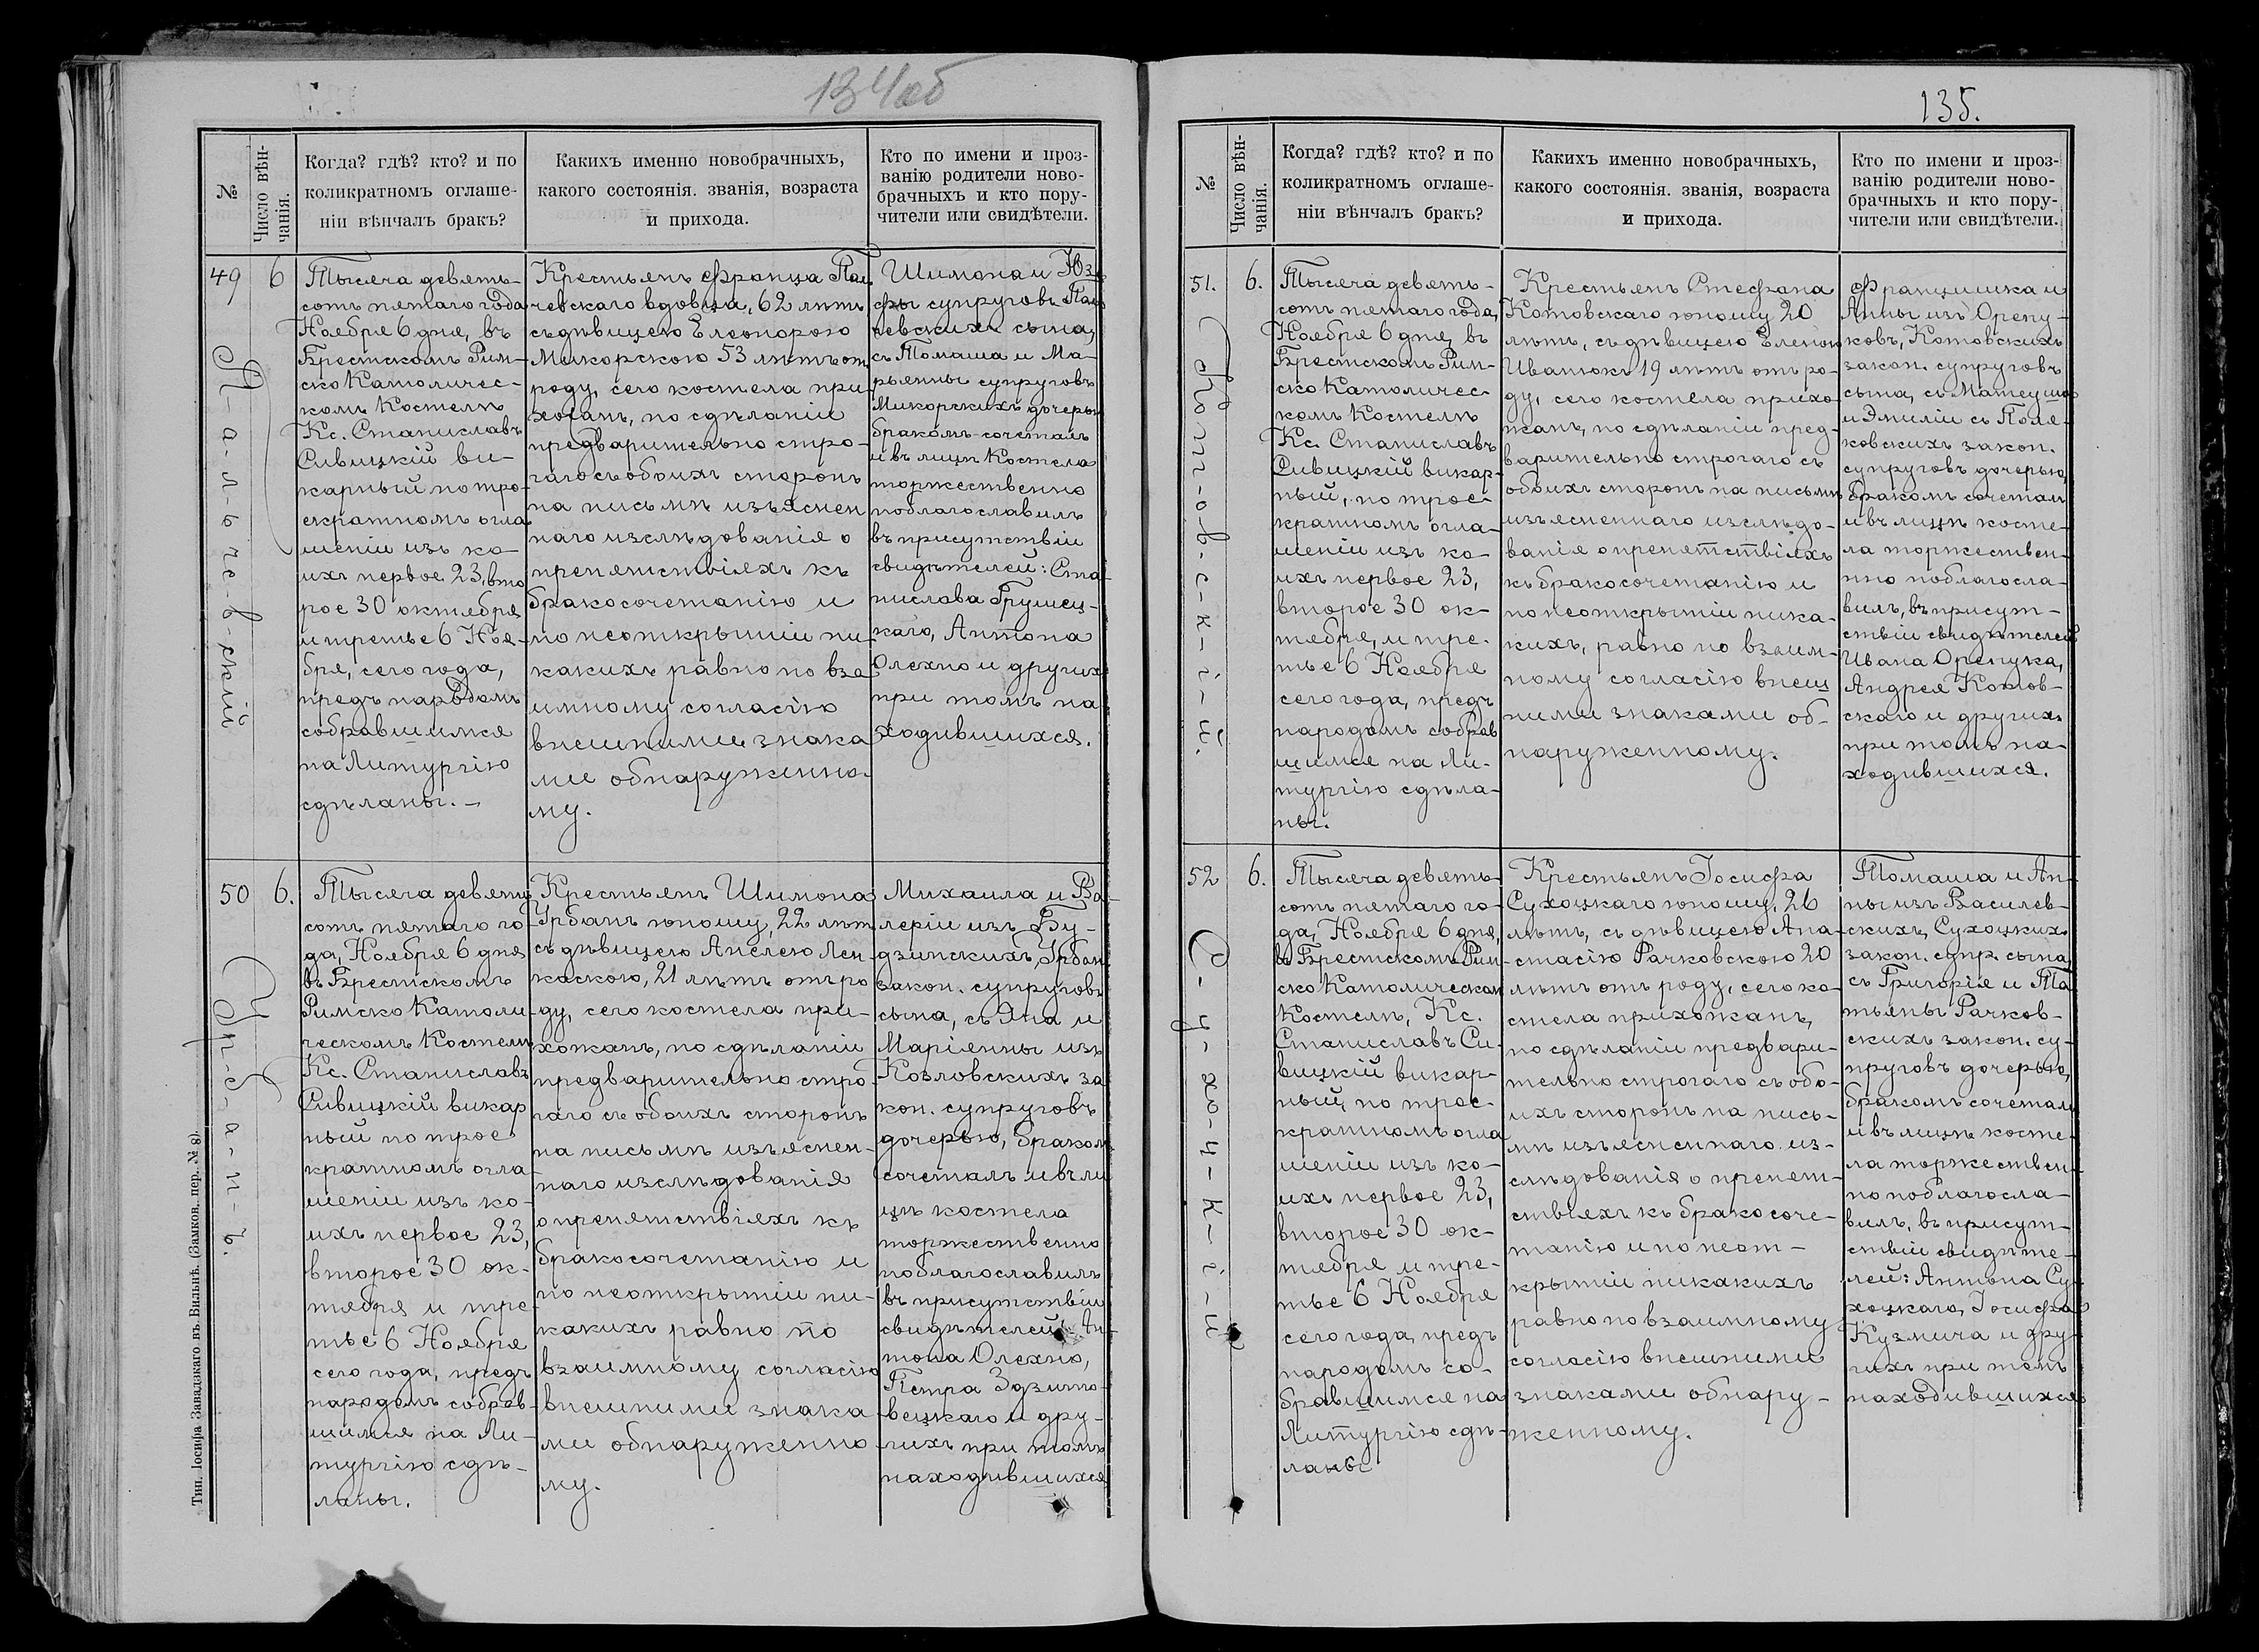 134об
№
Число вѣн-
чанія.
Когда? гдѣ? кто? и по
коликратномъ оглаше-
ніи вѣнчалъ бракъ?
Какихъ именно новобрачныхъ,
какого состоянія. званія, возраста
и прихода.
Кто по имени и проз-
ванію родители ново-
брачныхъ и кто пору-
чители или свидѣтели.
49
6
Тысяча девять-
сотъ пятаго года
Ноября 6 дня, въ
Брестскомъ Рим-
ско Католичес-
комъ Костелѣ
Кс. Станиславъ
Сивицкій ви-
карный по тро-
екратномъ огла
шеніи изъ ко-
ихъ первое 23, вто
рое 30 октября
и третье 6 Ноя-
бря, сего года,
предъ народомъ
собравшимся
на Литургію
сдѣланы. –
Крестьянъ Франца Пал
чевскаго вдовца, 62 лѣтъ
съ дѣвицею Елеонорою
Микорскою 53 лѣтъ отъ
роду, сего костела при
хожанъ, по сдѣланіи
предварительно стро-
гаго съ обоихъ сторонъ
на письмѣ изъяснен
наго изслѣдованія о
препятствіяхъ къ
бракосочетанію и
по неоткрытіи ни-
какихъ равно по вза
имному согласію
внешними знака
ми обнаруженно-
му.
Шимона и Юзе
фы супруговъ Паль
чевскихъ сына,
съ Томаша и Ма-
рьянны супруговъ
Микорскихъ дочерью
бракомъ сочеталъ
и въ лицѣ Костела
торжественно
поблагославилъ
въ присутствіи
свидѣтелей: Ста-
нислава Грушец-
каго, Антона
Олехно и другихъ
при томъ на
ходившихся.
50
6.
У-р-б-а-н-ъ.
Тысяча девять
сотъ пятаго го
да, Ноября 6 дня
въ Брестскомъ
Римско Католи
ческомъ Костелѣ
Кс. Станиславъ
Сивицкій викар
ный по трое
кратномъ огла
шеніи изъ ко-
ихъ первое 23,
второе 30 ок-
тября и тре-
тье 6 Ноября
сего года, предъ
народомъ собрав-
шимся на Ли-
тургію сдѣ-
ланы.
Крестьянъ Шимона
Урбанъ юношу, 22 лѣтъ
съ дѣвицею Анелею Лен-
каскою, 21 лѣтъ отъ ро
ду, сего костела при-
хожанъ, по сдѣланіи
предварительно стро-
гаго съ обоихъ сторонъ
на письмѣ изъяснен-
наго изслѣдованія
о препятствіяхъ къ
бракосочетанію и
по неоткрытіи ни-
какихъ равно по
взаимному согласію
внешними знака
ми обнаруженно
му.
Михаила и Ва-
леріи изъ Бу-
дзинскихъ, Урбан
закон. супруговъ
сына, съ Яна и
Маріянны изъ
Козловскихъ за
кон. супруговъ
дочерью, бракомъ
сочеталъ и въ ли
цѣ костела
торжественно
поблагославилъ
въ присутствіи
свидѣтелей: Ан-
тона Олехно,
Петра Здзито-
вецкаго и дру-
гихъ при томъ
находившихся
Тип. Іосифа Завадзкаго въ Вильнѣ. (Замков. пер. № 8).
135.
№
Число вѣн-
чанія.
Когда? гдѣ? кто? и по
коликратномъ оглаше-
ніи вѣнчалъ бракъ?
Какихъ именно новобрачныхъ,
какого состоянія. званія, возраста
и прихода.
Кто по имени и проз-
ванію родители ново-
брачныхъ и кто пору-
чители или свидѣтели.
51.
6.
Тысяча девять-
сотъ пятаго года,
Ноября 6 дня, въ
Брестскомъ Рим-
ско Католичес-
комъ Костелѣ
Кс. Станиславъ
Сивицкій викар-
ный, по трое-
кратномъ огла-
шеніи изъ ко-
ихъ первое 23,
второе 30 ок-
тября, и тре-
тье 6 Ноября
сего года, предъ
народомъ собрав
шимся на Ли-
тургію сдѣла-
ны.
Крестьянъ Стефана
Котовскаго юношу 20
лѣтъ, съ дѣвицею Еленою
Иватюкъ 19 лѣтъ отъ ро-
ду, сего костела прихо-
жанъ, по сдѣланіи пред-
варительно строгаго съ
обоихъ сторонъ на письмѣ
изъясненнаго изслѣдо-
ванія о препятствіяхъ
къ бракосочетанію и
по неоткрытіи ника-
кихъ, равно по взаим-
ному согласію внеш
ними знаками об-
наруженному.
Францишка и
Анны изъ Орепу-
ковъ, Котовскихъ
закон. супруговъ
сына, съ Матеуша
и Эмиліи съ Поля-
ковскихъ закон.
супруговъ дочерью,
бракомъ сочеталъ
и въ лицѣ косте-
ла торжествен-
но поблагосла-
вилъ, въ присут-
ствіи свидѣтелей
Ивана Орепука,
Андрея Котов-
скаго и другихъ
при томъ на-
ходившихся.
52
6.
С-у-х-о-ц-к-і-й
Тысяча девять-
сотъ пятаго го-
да, Ноября 6 дня,
въ Брестскомъ Рим
ско Католическомъ
Костелѣ, Кс.
Станиславъ Си-
вицкій викар-
ный, по трое-
кратномъ огла
шеніи изъ ко-
ихъ первое 23,
второе 30 ок-
тября и тре-
тье 6 Ноября
сего года, предъ
народомъ со-
бравшимся на
Литургію сдѣ-
ланы
Крестьянъ Іосифа
Сухоцкаго юношу, 26
лѣтъ, съ дѣвицею Ана-
стасію Рачковскою 20
лѣтъ отъ роду, сего ко-
стела прихожанъ,
по сдѣланіи предвари-
тельно строгаго съ обо-
ихъ сторонъ на пись-
мѣ изъясненнаго из-
слѣдованія о препят-
ствіяхъ къ бракосоче-
танію и по неот-
крытіи никакихъ
равно по взаимному
согласію внешними
знаками обнару-
женному.
Томаша и Ан-
ны изъ Василев-
скихъ, Сухоцкихъ
закон. супр. сына,
съ Григорія и Та
тьяны Рачков-
скихъ закон. су-
пруговъ дочерью,
бракомъ сочеталъ
и въ лицѣ косте-
ла торжествен-
но поблагосла-
вилъ, въ присут-
ствіи свидѣте-
лей: Антона Су-
хоцкаго, Іосифа
Кузмича и дру-
гихъ при томъ
находившихся